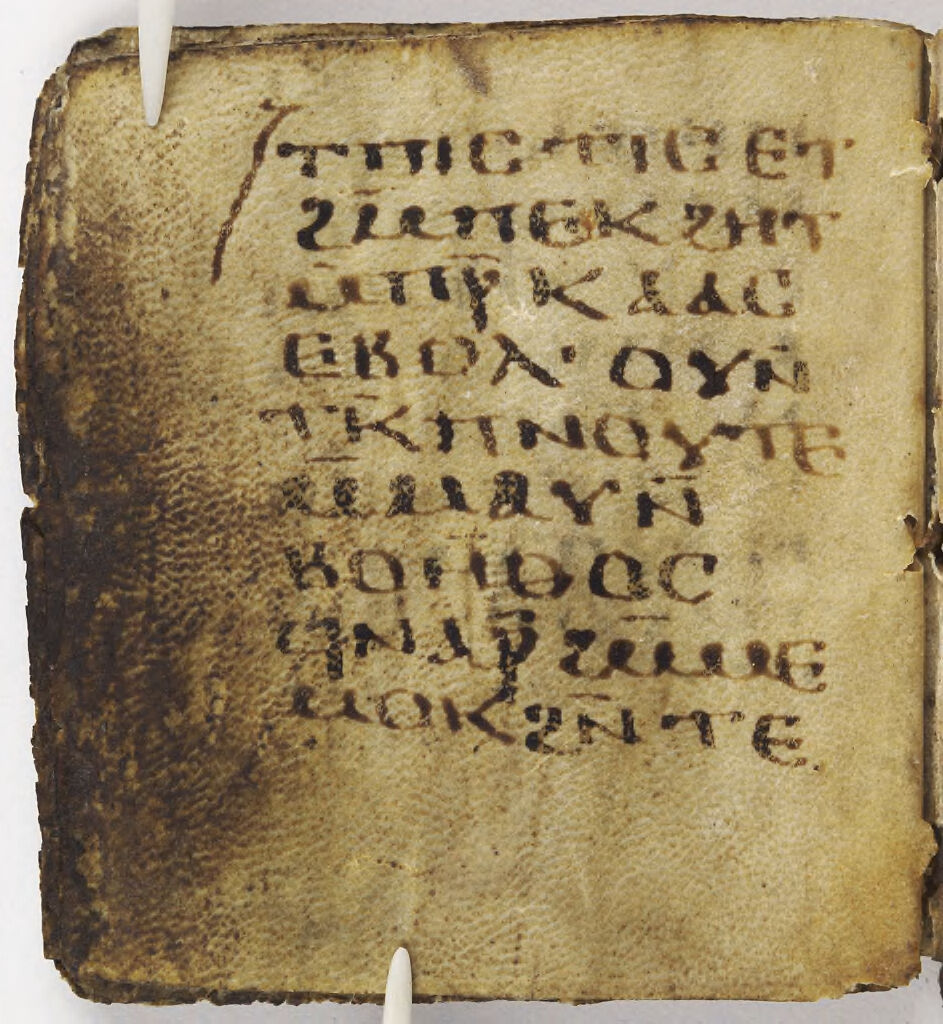 ⲧⲡⲓⲥⲧⲓⲥ ⲉⲧ
ϩⲙ̄ⲡⲉⲕϩⲏⲧ
ⲙ̄ⲡⲣ̄ⲕⲁⲁⲥ
ⲉⲃⲟⲗ· ⲟⲩⲛ̄
ⲧⲕ̄ⲡⲛⲟⲩⲧⲉ
ⲙ̄ⲙⲁⲩⲛ̄
ⲃⲟⲏⲑⲟⲥ
ϥⲛⲁⲣ̄ϩⲙ̄ⲙⲉ
ⲙⲟⲕϩⲛ̄ⲧⲉ